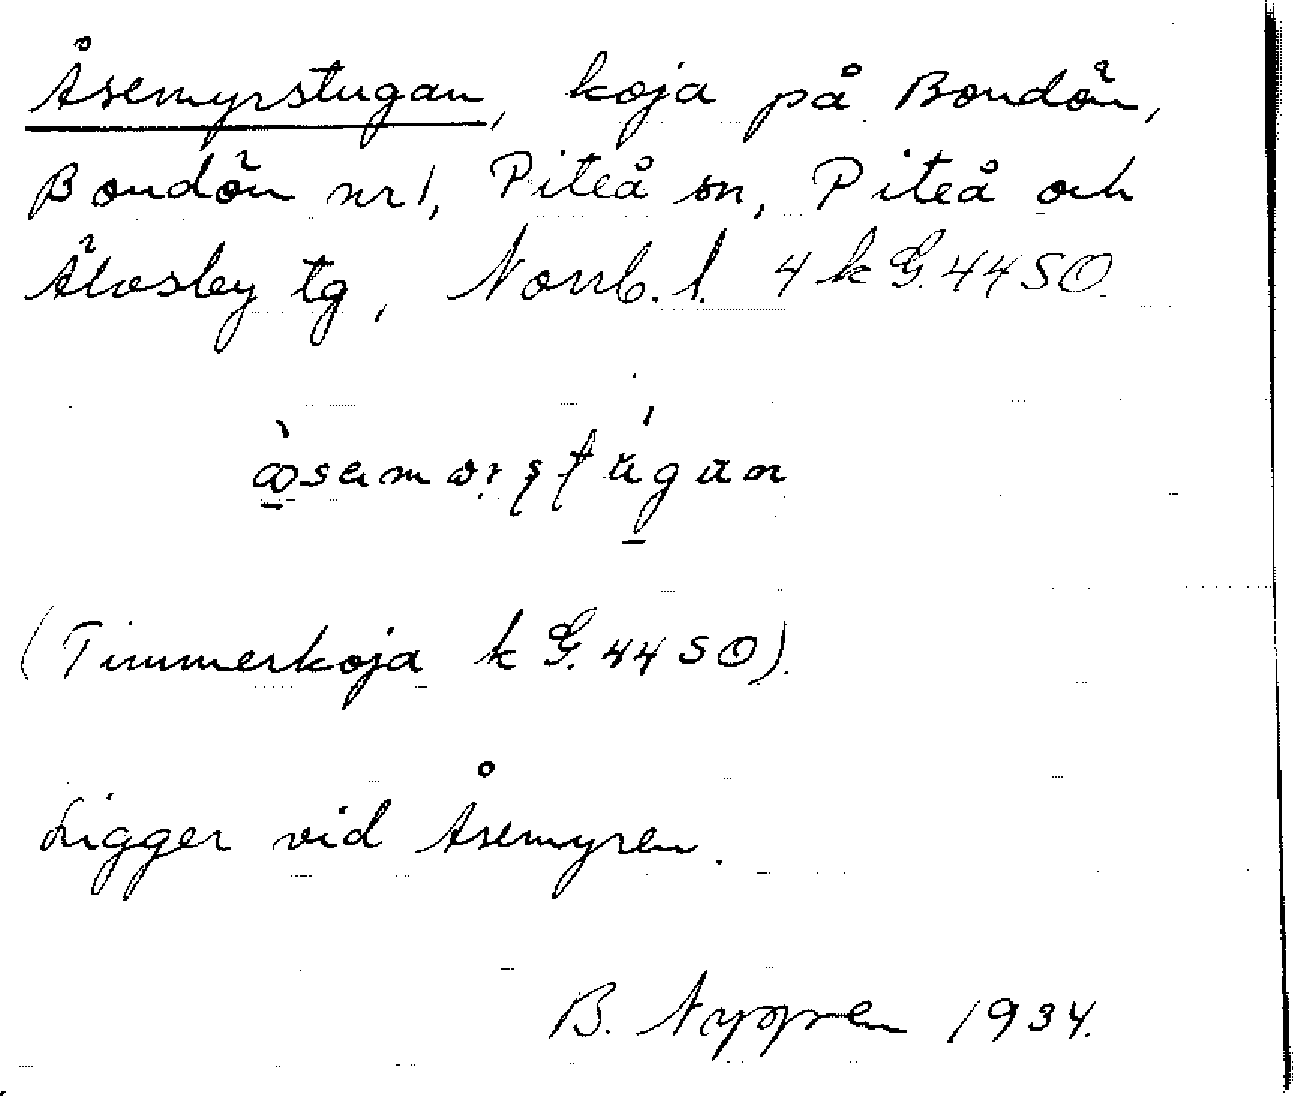 Åsemyrstugan, koja på Bondön,
Bondön nr 1, Piteå sn, Piteå och
Älvsby tg, Norrb. l. 4 k G. 44 50.
(Timmerkoja k G. 44 50).
Ligger vid Åsemyren.
B. Nygren 1934.